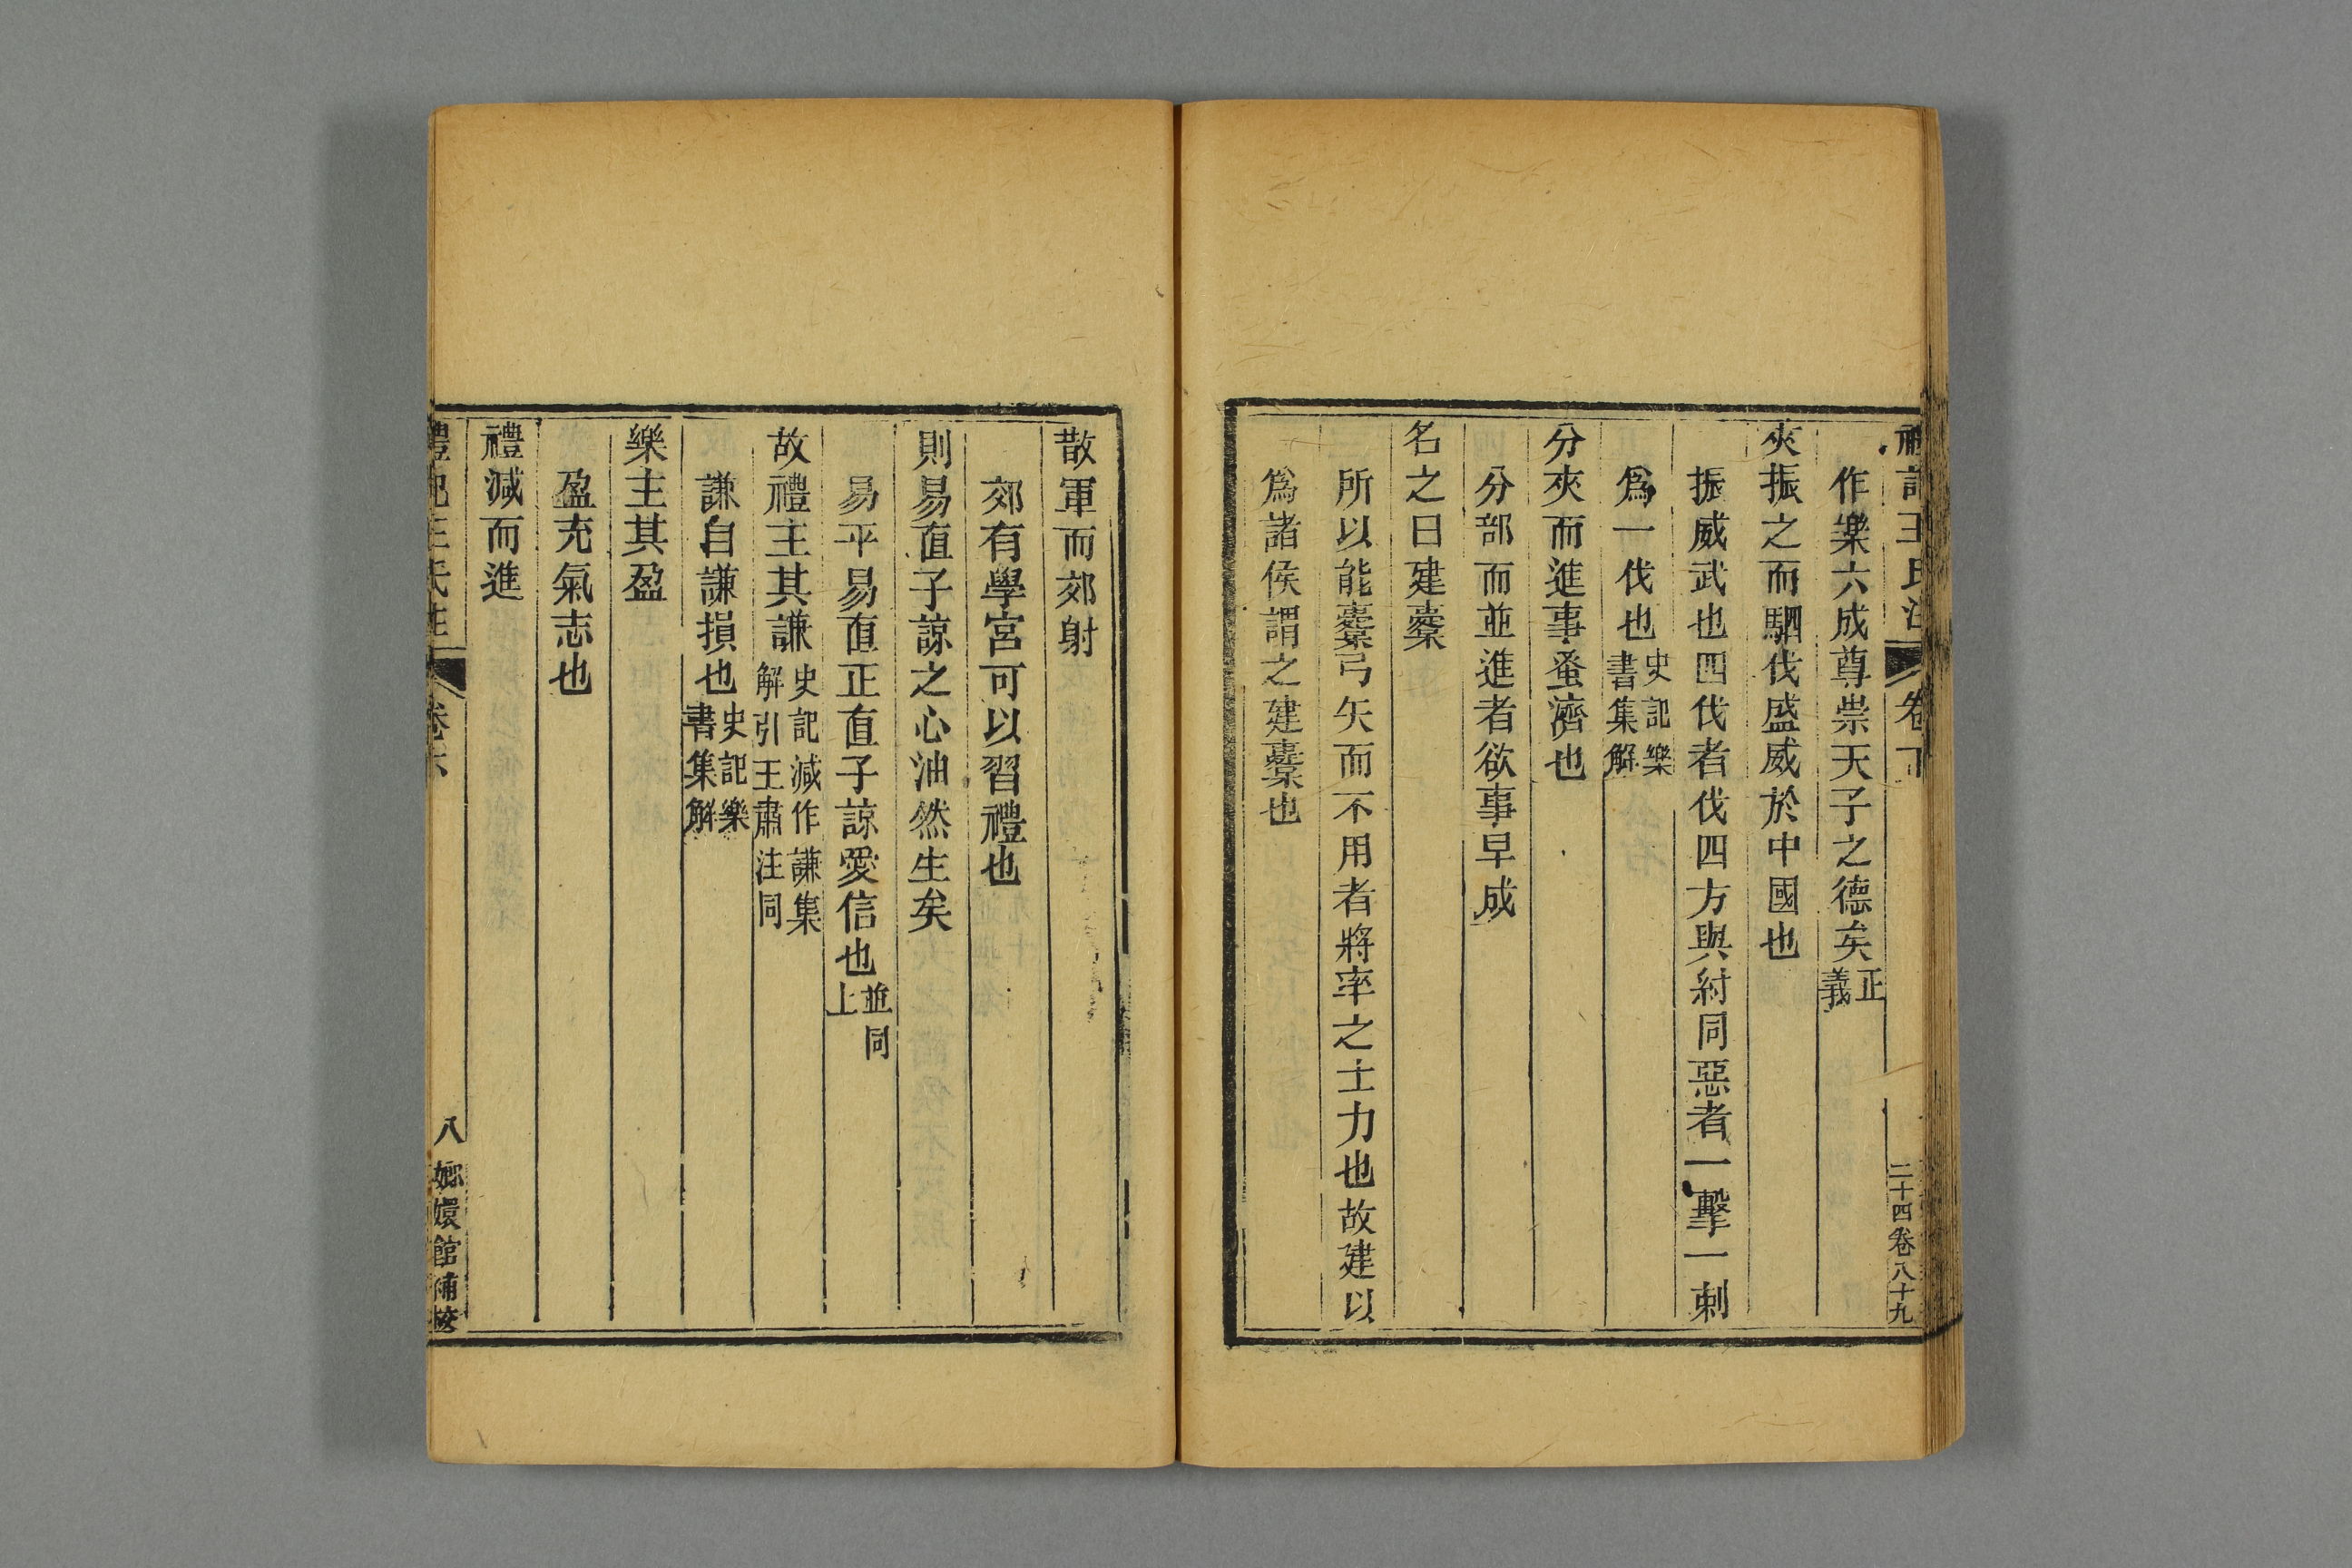 禮記王氏注 卷下 二十四卷八十九
作樂六成尊崇天子之德矣正義
夾振之而駟伐盛威於中國也
振威武也四伐者伐四方與紂同惡者一擊一刺
爲一伐也史記樂書集解
分夾而進事蚤濟也
分部而並進者欲事早成
名之曰建櫜
所以能櫜弓矢而不用者將率之士力也故建以
爲諸侯謂之建櫜也
散軍而郊射
郊有學宮可以習禮也
則易直子諒之心油然生矣
易平易直正直子諒愛信也並同上
故禮主其謙史記減作謙集解引王肅注同
謙自謙損也史記樂書集解
樂主其盈
盈充氣志也
禮減而進
禮記王氏注 卷下 八 嫏嬛館補校